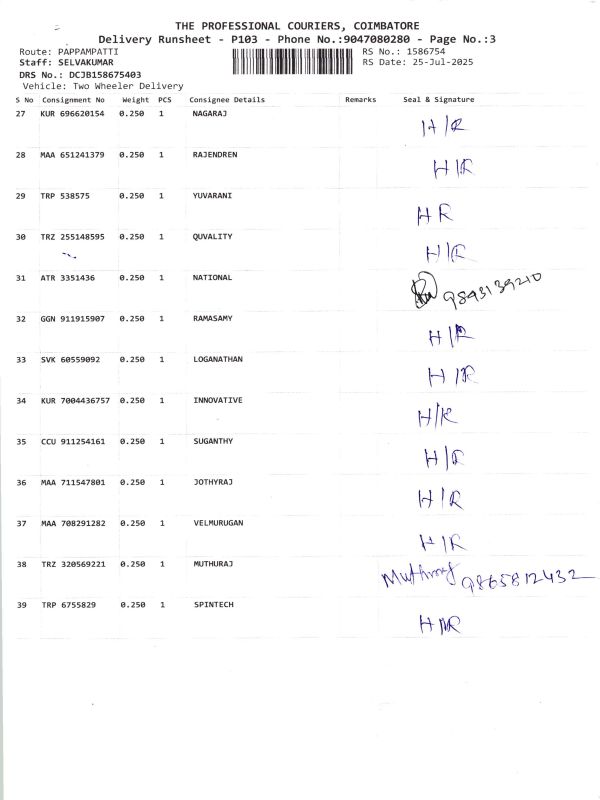 THE PROFESSIONAL COURIERS, COIMBATORE
Delivery Runsheet - P103 - Phone No.:9047080280 - Page No.:3
Route: PAPPAMPATTI RS No.: 1586754
Staff: SELVAKUMAR RS Date: 25-Jul-2025
DRS No.: DCJB158675403
Vehicle: Two Wheeler Delivery
S No Consignment No Weight PCS Consignee Details Remarks Seal & Signature
27 KUR 696620154 0.250 1 NAGARAJ H/R
28 MAA 651241379 0.250 1 RAJENDREN H/R
29 TRP 538575 0.250 1 YUVARANI H R
30 TRZ 255148595 0.250 1 QUVALITY H/R
31 ATR 3351436 0.250 1 NATIONAL 9843139210
32 GGN 911915907 0.250 1 RAMASAMY H/R
33 SVK 60559092 0.250 1 LOGANATHAN H/R
34 KUR 7004436757 0.250 1 INNOVATIVE H/R
35 CCU 911254161 0.250 1 SUGANTHY H/R
36 MAA 711547801 0.250 1 JOTHYRAJ H/R
37 MAA 708291282 0.250 1 VELMURUGAN H/R
38 TRZ 320569221 0.250 1 MUTHURAJ Muthuraj 9865812432
39 TRP 6755829 0.250 1 SPINTECH H/R